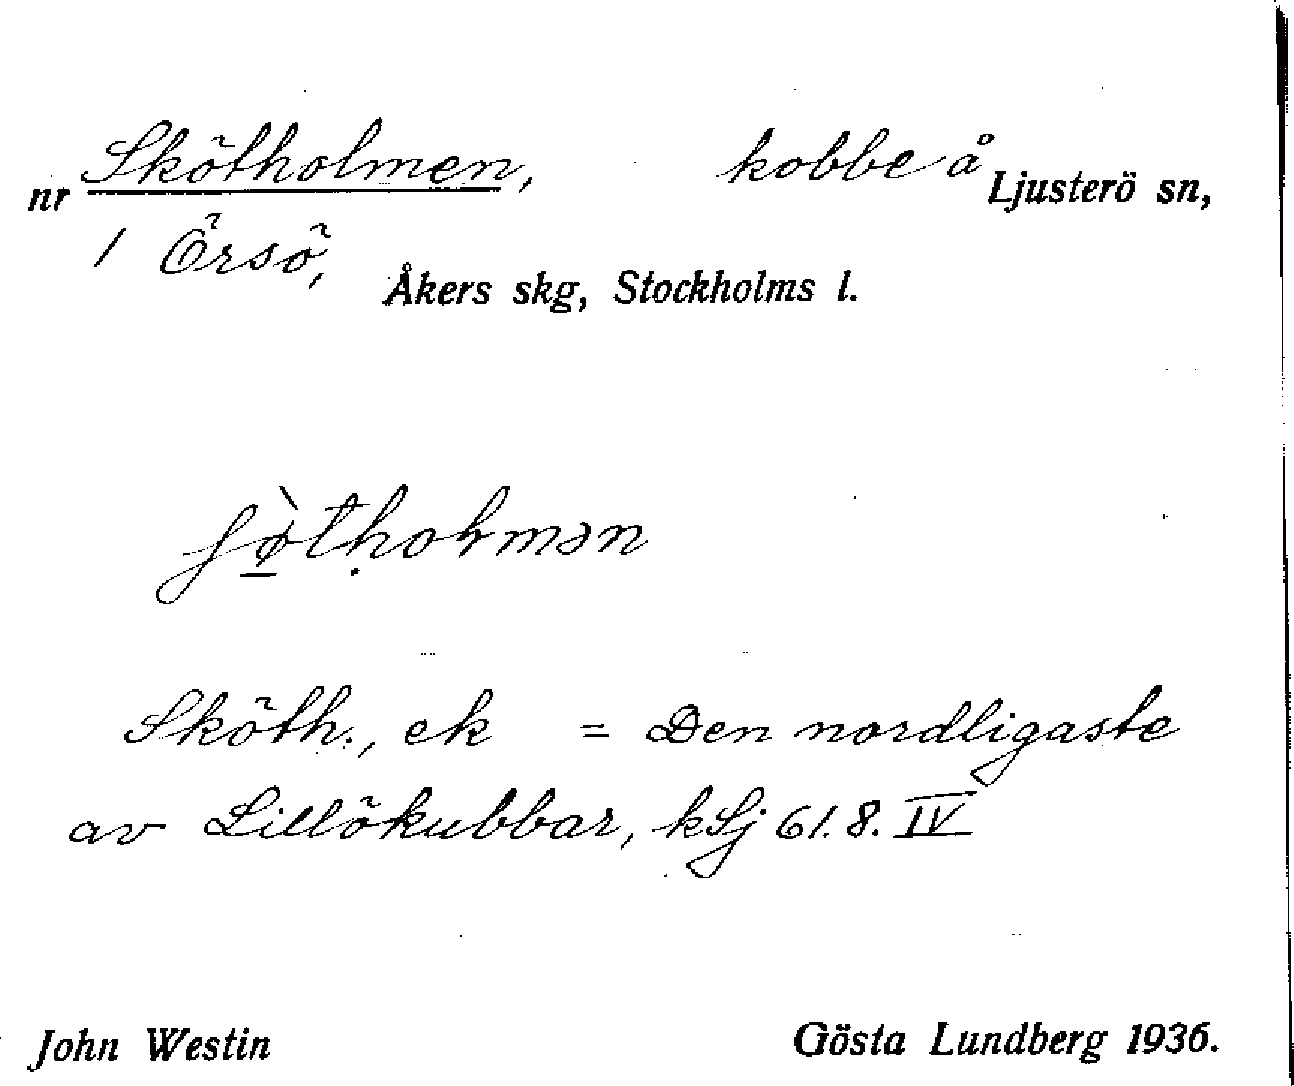 Skötholmen, kobbe å
nr Ljusterö sn,
1 Örsö,
Åkers skg, Stockholms l.
Sköth., ek = Den nordligaste
av Lillökubbar, kSj 61.8. IV
John Westin Gösta Lundberg 1936.